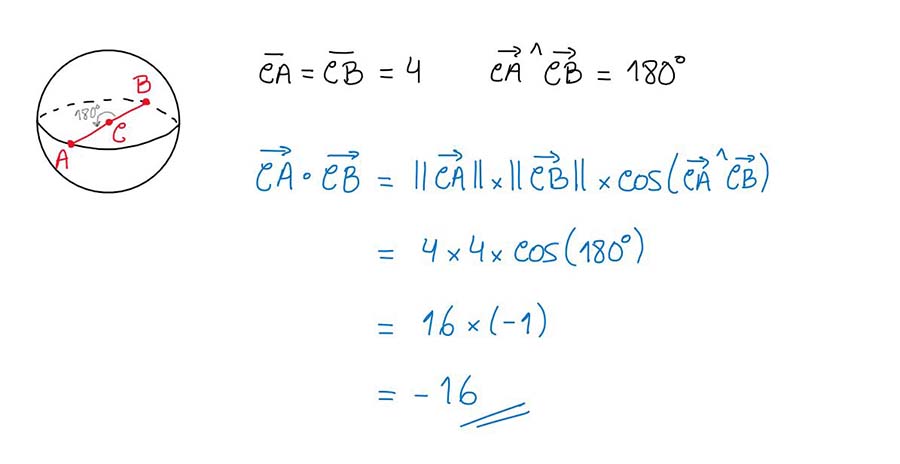 B
180°
C
A
C̅A̅ = C̅B̅ = 4    C⃗A⃗ ^ C⃗B⃗ = 180°
C⃗A⃗ • C⃗B⃗ = ||C⃗A⃗|| × ||C⃗B⃗|| × cos(C⃗A⃗ ^ C⃗B⃗)
= 4 × 4 × cos(180°)
= 16 × (-1)
= -16